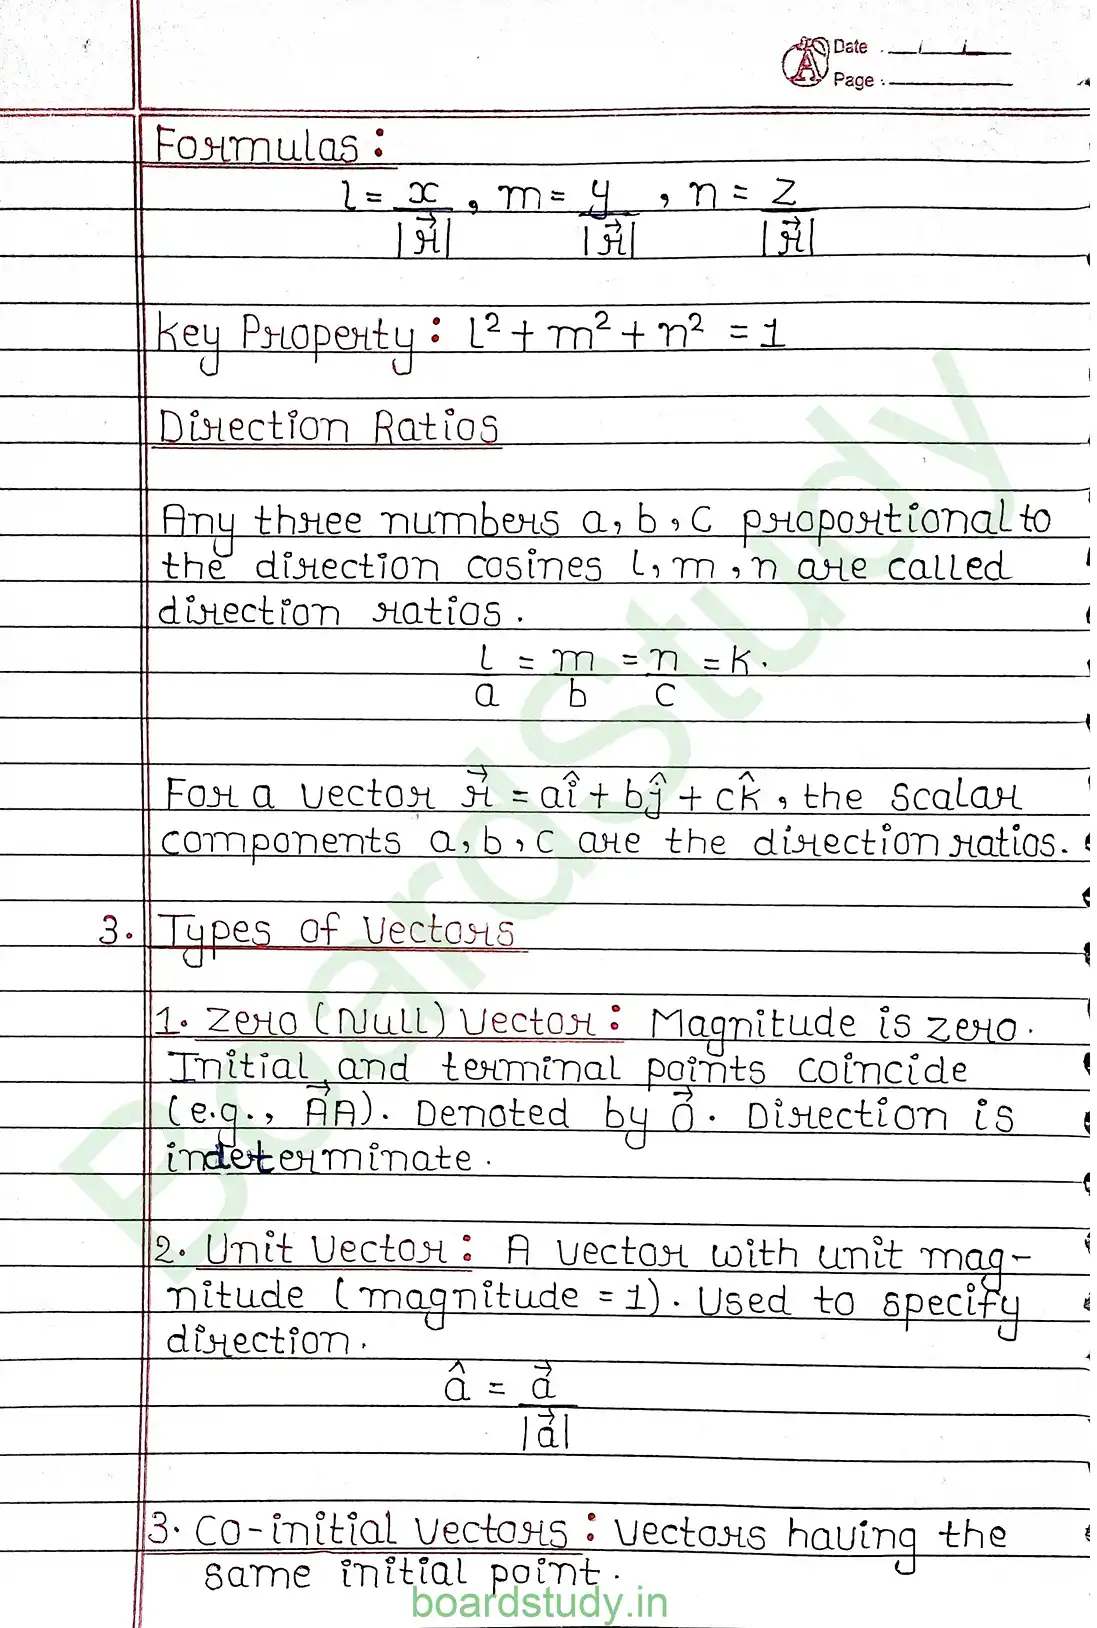 Date : / /
Page :
Formulas :
l = x/|r⃗| , m = y/|r⃗| , n = z/|r⃗|
Key Property : l² + m² + n² = 1
Direction Ratios
Any three numbers a, b, c proportional to
the direction cosines l, m, n are called
direction ratios.
l/a = m/b = n/c = k.
For a vector r⃗ = aî + bĵ + ck̂, the scalar
components a, b, c are the direction ratios.
3. Types of Vectors
1. Zero (Null) Vector : Magnitude is zero.
Initial and terminal points coincide
(e.g., A⃗A). Denoted by 0⃗. Direction is
indeterminate.
2. Unit Vector : A vector with unit mag-
nitude (magnitude = 1). Used to specify
direction.
â = a⃗/|a⃗|
3. Co-initial Vectors : Vectors having the
same initial point.
BoardStudy
boardstudy.in